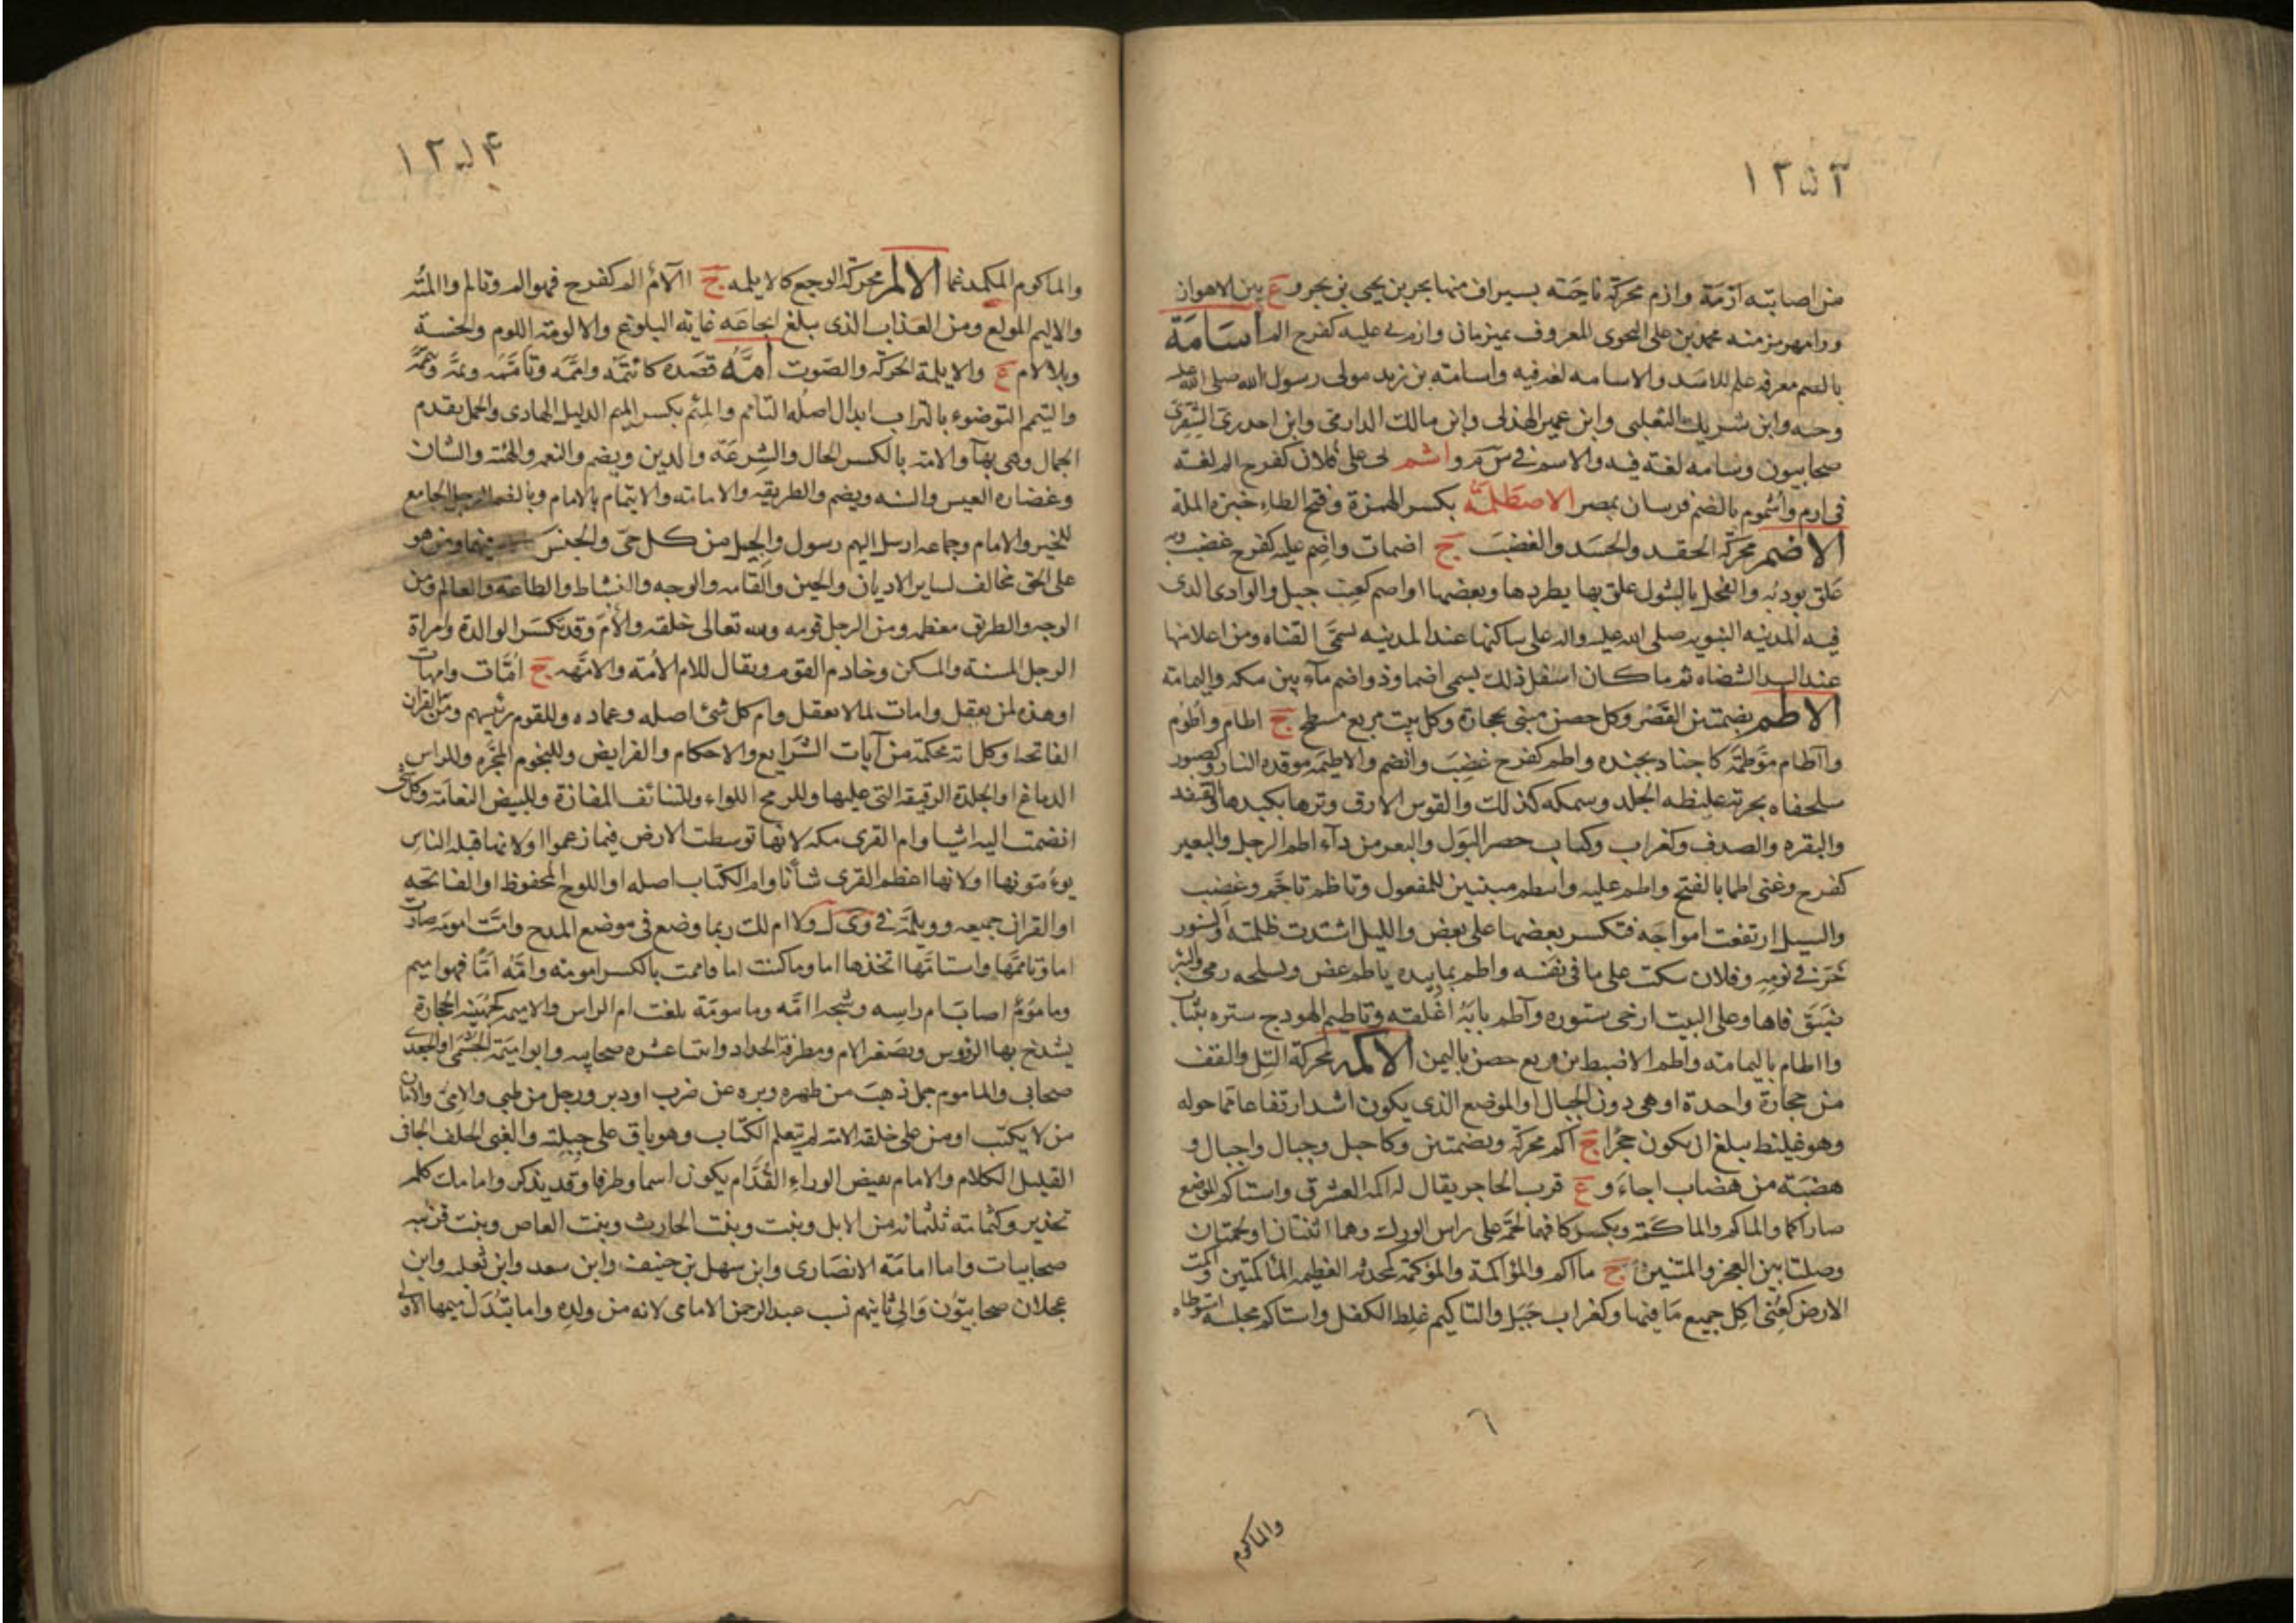 ١٢٥٣
من اصابته ازمة وازم محركة ناحية بسيراف منها بحر بن يحيى بن بحر و ع بين الاهواز
ورامهرمز منه محمد بن على النحوى المعروف بمبرمان وازم عليه كفرح الم اسامة
بالضم معرفه علم للاسد والاسامه لغه فيه واسامة بن زيد مولى رسول الله صلى الله عليه
وحبه وابن شريك الثعلبى وابن عمير الهذلى وابن مالك الدارمى وابن اخدرى الشقرى
صحابيون وسامه لغة فيه والاسم فى س م و اشم لى على فلان كفرح الم لغة
فى ارم واشموم بالضم قريتان بمصر الاصطلمة بكسر الهمزة وفتح الطاء خبزة الملة
الاضم محركة الحقد والحسد والغضب ج اضمات واضم عليه كفرح غضب وبه
علق يوذيه والفحل بالشول علق بها يطردها ويعضها او اضم كعنب جبل والوادى الذى
فيه المدينه النبويه صلى الله عليه واله على ساكنها عند المدينه يسمى القناه ومن اعلا منها
عند السد الشضاه ثم ما كان اسفل ذلك يسمى اضما وذو اضم مآء بين مكه واليمامة
الاطم بضمتين القصر وكل حصن مبنى بحجارة وكل بيت مربع مسطح ج اطام واطوم
وآطام مؤطمة كاجناد مجنده واطم كفرح غضب وانضم والاطيمة موقده النار وكصبور
سلحفاه بحرية غليظه الجلد وسمكه كذلك والقوس الازق وترها بكبدها والقنفد
والبقره والصدف وكغراب وكتاب حصر البول والبعر من دآء اطم الرجل والبعير
كفرح وعنى اطما بالفتح واطم عليه واسطم مبنيين للمفعول وتاظم تاجم وغضب
والسيل ارتفعت امواجه فتكسر بعضها على بعض والليل اشتدت ظلمته والسنور
خرخر فى نومه وفلان سكت على ما فى نفسه واطم بيده ياطم عض وبسلحه رمى والبئر
ضيق فاها وعلى البيت ارخى ستوره وآطم بابه اغلقه وتاطيم الهودج ستره بثياب
واطام باليمامة واطم الاضبط بن قريع حصن باليمن الاكمه محركة التل والقف
من حجارة واحدة او هى دون الجبال او الموضع الذى يكون اشد ارتفاعا مما حوله
وهو غليظ يبلغ ان يكون حجرا ج اكم محركه وبضمتين وكاجبل وجبال واجبال و
هضبة من هضاب اجاء و ع قرب الحاجر يقال له اكمه العشرق واستاكم الموضع
صار اكما والماكم والماكمة ويكسر كافهما لحمة على راس الورك وهما اثنتان او لحمتان
وصلتا بين العجز والمتنين ج ماآكم والمؤاكمة والمؤكمة كمحدثه العظيمه الماكمتين واكمت
الارض كعنى اكل جميع ما فيها وكغراب جبل والتاكيم غلظ الكفل واستاكم مجلسه استوطاه
والماكوم
١٢٥۴
والماكوم المكمد غما الالم محركة الوجع كالايلمه ج الآلام الم كفرح فهو الم وتالم والمته
والاليم المولع ومن العذاب الذى يبلغ ايجاعه غاية البلوغ والالومة اللوم والخسة
وبلالام ع والايلمة الحركه والصوت امه قصده كائتمه واممه وتاممه ويممه وتيممه
والتيمم التوضوء بالتراب ابدال اصله التاءمم والمئم بكسر الميم الدليل الهادى والجمل يقدم
الجمال وهى بهآ والامة بالكسر الحال والشرعة والدين ويضم والنعمه والهيئة والشان
وغضاره العيس والسنه ويضم والطريقه والامامة والايتمام بالامام وبالضم الرجل الجامع
للخير والامام وجماعه ارسل اليهم رسول والجيل من كل حى والجنس ومن هو
على الحق مخالف لساير الاديان والحين والقامه والوجه والنشاط والطاعة والعالم ومن
الوجه والطريق معظمه ومن الرجل قومه ولله تعالى خلقه والام وقد تكسر الوالدة وامراة
الرجل المسنة والمسكن وخادم القوم ويقال للام الامة والامهه ج امات وامهات
او هذه لمن يعقل وامات لما لا يعقل وام كل شئ اصله وعماده وللقوم رئيسهم ومن القران
الفاتحة او كل اية محكمة من آيات الشرايع والاحكام والفرايض وللنجوم المجره وللراس
الدماغ او الجلدة الرقيقة التى عليها وللرمح اللواء وللتنائف المفازة وللبيض النعامة وكل شئ
انضمت اليه اشيا وام القرى مكه لانها توسطت الارض فيما زعموا او لانها قبله الناس
يوءمونها او لانها اعظم القرى شأنا وام الكتاب اصله او اللوح المحفوظ او الفاتحه
او القران جميعه وويلمه فى وى ل ولا ام لك ربما وضع فى موضع المدح وامت امومه صارت
اما وتاممها واستامها اتخذها اما وما كنت اما فاممت بالكسر امومة وامه اما فهو اميم
وماموم اصاب ام راسه وشجه آمه ومامومة بلغت ام الراس والاميم كجهينه الحجارة
يشدخ بها الرؤوس وتصغر الام ومطرقة الحداد واثنتا عشره صحابيه وابو اميمة الجشمى او الجعدى
صحابى والماموم جمل ذهب من ظهره وبره عن ضرب او دبر ورجل من طيى والامى والامان
من لا يكتب او من على خلقه الامة لم يتعلم الكتاب وهو باق على جبلته والغبى الجلف الجافى
القليل الكلام والامام نقيض الوراء القدام يكون اسما وظرفا وقد يذكر وامامك كلمه
تحذير وكثمامة ثلثمائه من الابل وبنت وبنت الحارث وبنت العاص وبنت قريبه
صحابيات واما امامة الانصارى وابن سهل بن حنيف وابن سعد وابن ثعلبه وابن
عجلان صحابيون والى ثانيهم نسب عبد الرحمن الامامى لانه من ولده واما يبدل ميمها الاولى